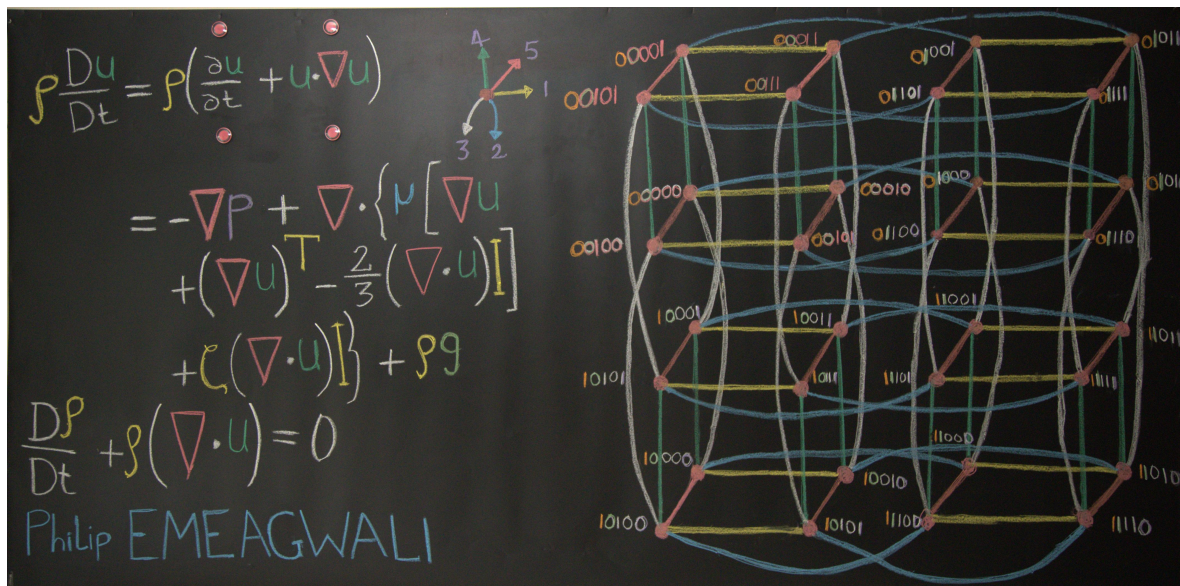 ρ Du/Dt = ρ(∂u/∂t + u·∇u)
= -∇p + ∇·{μ[∇u
+(∇u)ᵀ - 2/3(∇·u)I]
+ζ(∇·u)I} + ρg
Dρ/Dt + ρ(∇·u) = 0
Philip EMEAGWALI
4
5
1
3 2
00001 00011 01001 01011
00101 00111 01101
00000 00010 01000
00100 00101 01100 01110
10001 10011 11001 11011
10101 11101
10000 10010 11000 11010
10100 10101 11100 11110